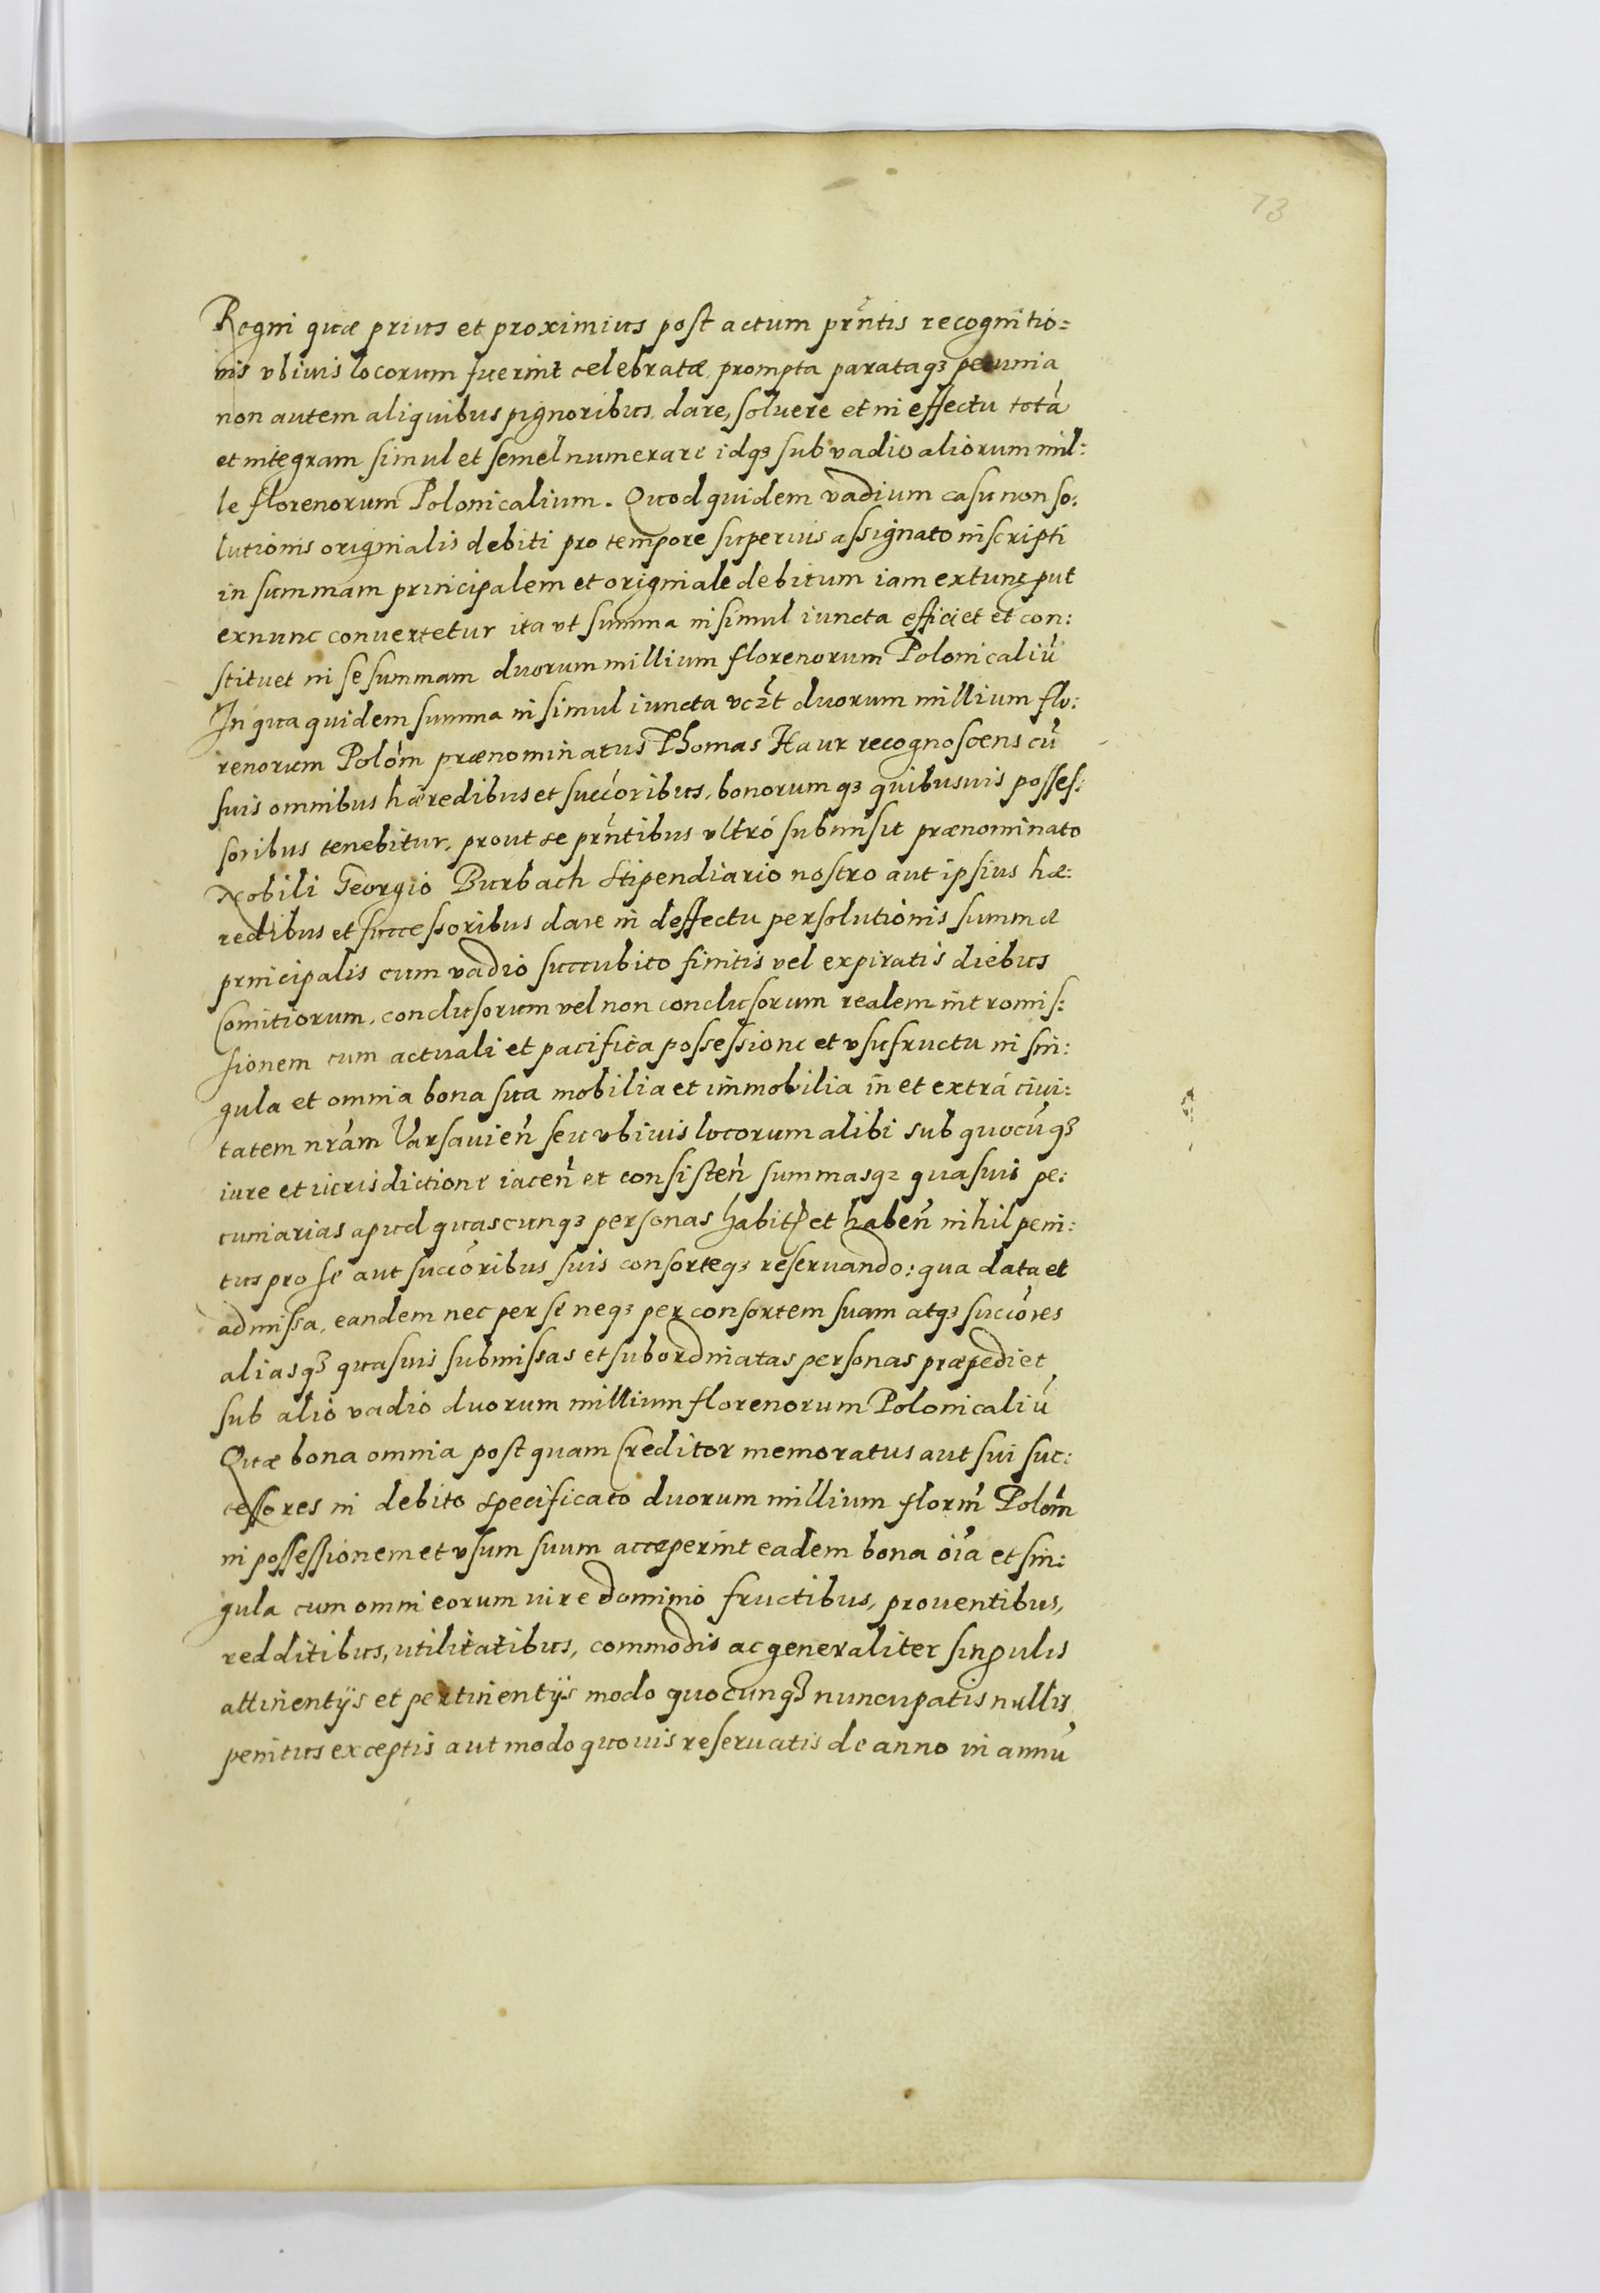 73
Regni quæ prius et proximius post actum prñtis recognitio=
nis vbiuis locorum fuerint celebratæ, prompta parataqꝫ pecunia
non autem aliquibus pignoribus, dare, soluere et in effectu totã
et integram simul et semel numerare idqꝫ sub vadio aliorum mil:
le florenorum Polonicalium. Quod quidem vadium casu non so:
lutionis originalis debiti pro tempore superius assignato inscripti
in summam principalem et originale debitum iam extunc put
exnunc conuertetur ita vt summa insimul iuncta efficiet et con:
stituet in se summam duorum millium florenorum Polonicaliũ
In qua quidem summa insimul iuncta vczt duorum millium flo:
renorum Polõm prænominatus Thomas Haur recognoscens cũ
suis omnibus hæredibus et succõribus, bonorumqꝫ quibusuis posses:
soribus tenebitur, prout se prñtibus vltró submisit prænominato
Nobili Georgio Burbach stipendiario nostro aut ipsius hæ:
redibus et successoribus dare in deffectu persolutionis summæ
principalis cum vadio succubito finitis vel expiratis diebus
Comitiorum, conclusorum vel non conclusorum realem intromis:
sionem cum actuali et pacifica possessione et vsufructu in sin:
gula et omnia bona sua mobilia et immobilia in et extrá ciui:
tatem nrãm Varsauieñ seu vbiuis locorum alibi sub quocũqꝫ
iure et iurisdictione iaceñ et consisteñ summasqꝫ quasuis pe:
cuniarias apud quascunqꝫ personas habit et habeñ nihil peni:
tus pro se aut succõribus suis consorteqꝫ reseruando: qua data et
admissa, eandem nec per se neqꝫ per consortem suam atqꝫ succõres
aliasqꝫ quasuis submissas et subordinatas personas præpediet
sub alio vadio duorum millium florenorum Polonicaliũ
Quæ bona omnia postquam Creditor memoratus aut sui suc:
cessores in debito specificato duorum millium florm̃ Polõm
in possessionem et vsum suum acceperint eadem bona oĩa et sin:
gula cum omni eorum iure dominio fructibus, prouentibus,
redditibus, utilitatibus, commodis ac generaliter singulis
attinentijs et pertinentijs modo quocunqꝫ nuncupatis nullis
penitus exceptis aut modo quouis reseruatis de anno in annũ